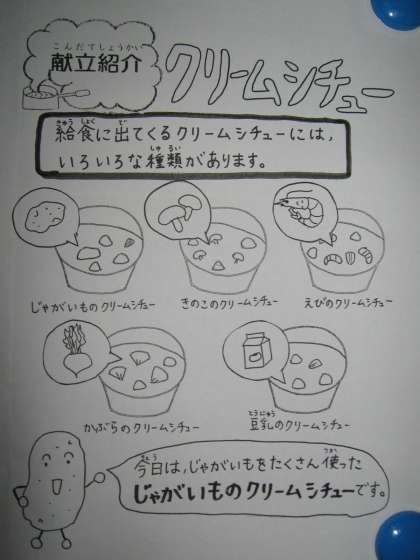 こんだてしょうかい
献立紹介
クリームシチュー
きゅうしょく で
給食に出てくるクリームシチューには、
しゅるい
いろいろな種類があります。
じゃがいものクリームシチュー
きのこのクリームシチュー
えびのクリームシチュー
かぶらのクリームシチュー
とうにゅう
豆乳のクリームシチュー
きょう つか
今日は、じゃがいもをたくさん使った
じゃがいものクリームシチューです。